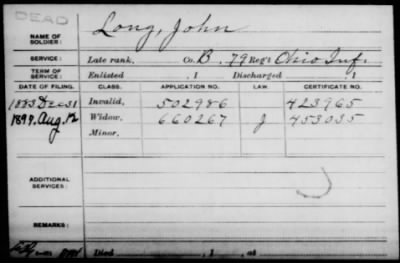 DEAD
NAME OF SOLDIER: Long, John
SERVICE: Late rank, Co. B, 79 Reg't Ohio Inf.
TERM OF SERVICE: Enlisted , 1 Discharged , 1
DATE OF FILING. CLASS. APPLICATION NO. LAW. CERTIFICATE NO.
1883 Dec 31 Invalid, 502986 423965
1897. Aug. 12 Widow, 660267 J 453035
Minor,
ADDITIONAL SERVICES:
REMARKS:
Died , 1 , at